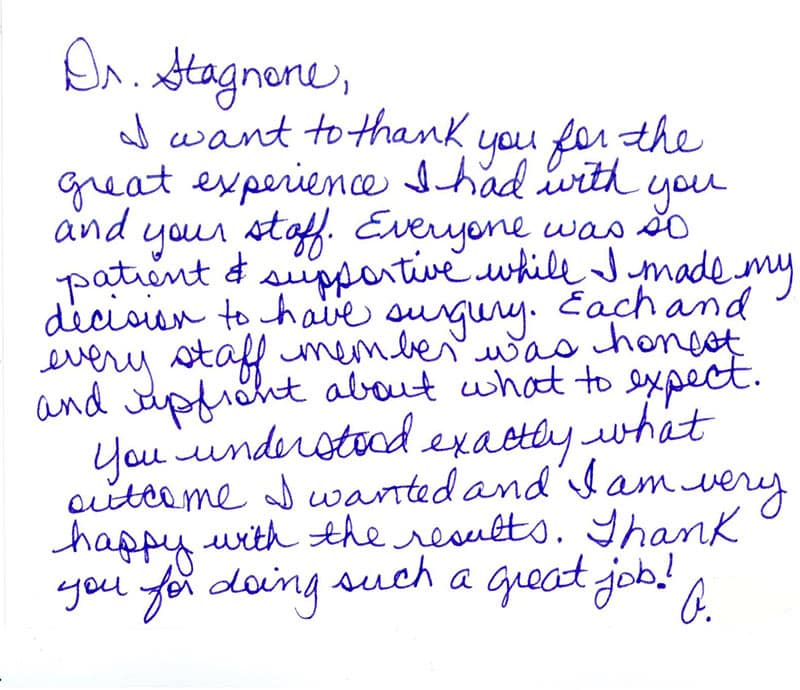 Dr. Stagnone,
I want to thank you for the
great experience I had with you
and your staff. Everyone was so
patient & supportive while I made my
decision to have surgury. Each and
every staff member was honest
and upfront about what to expect.
You understood exactly what
outcome I wanted and I am very
happy with the results. Thank
you for doing such a great job!